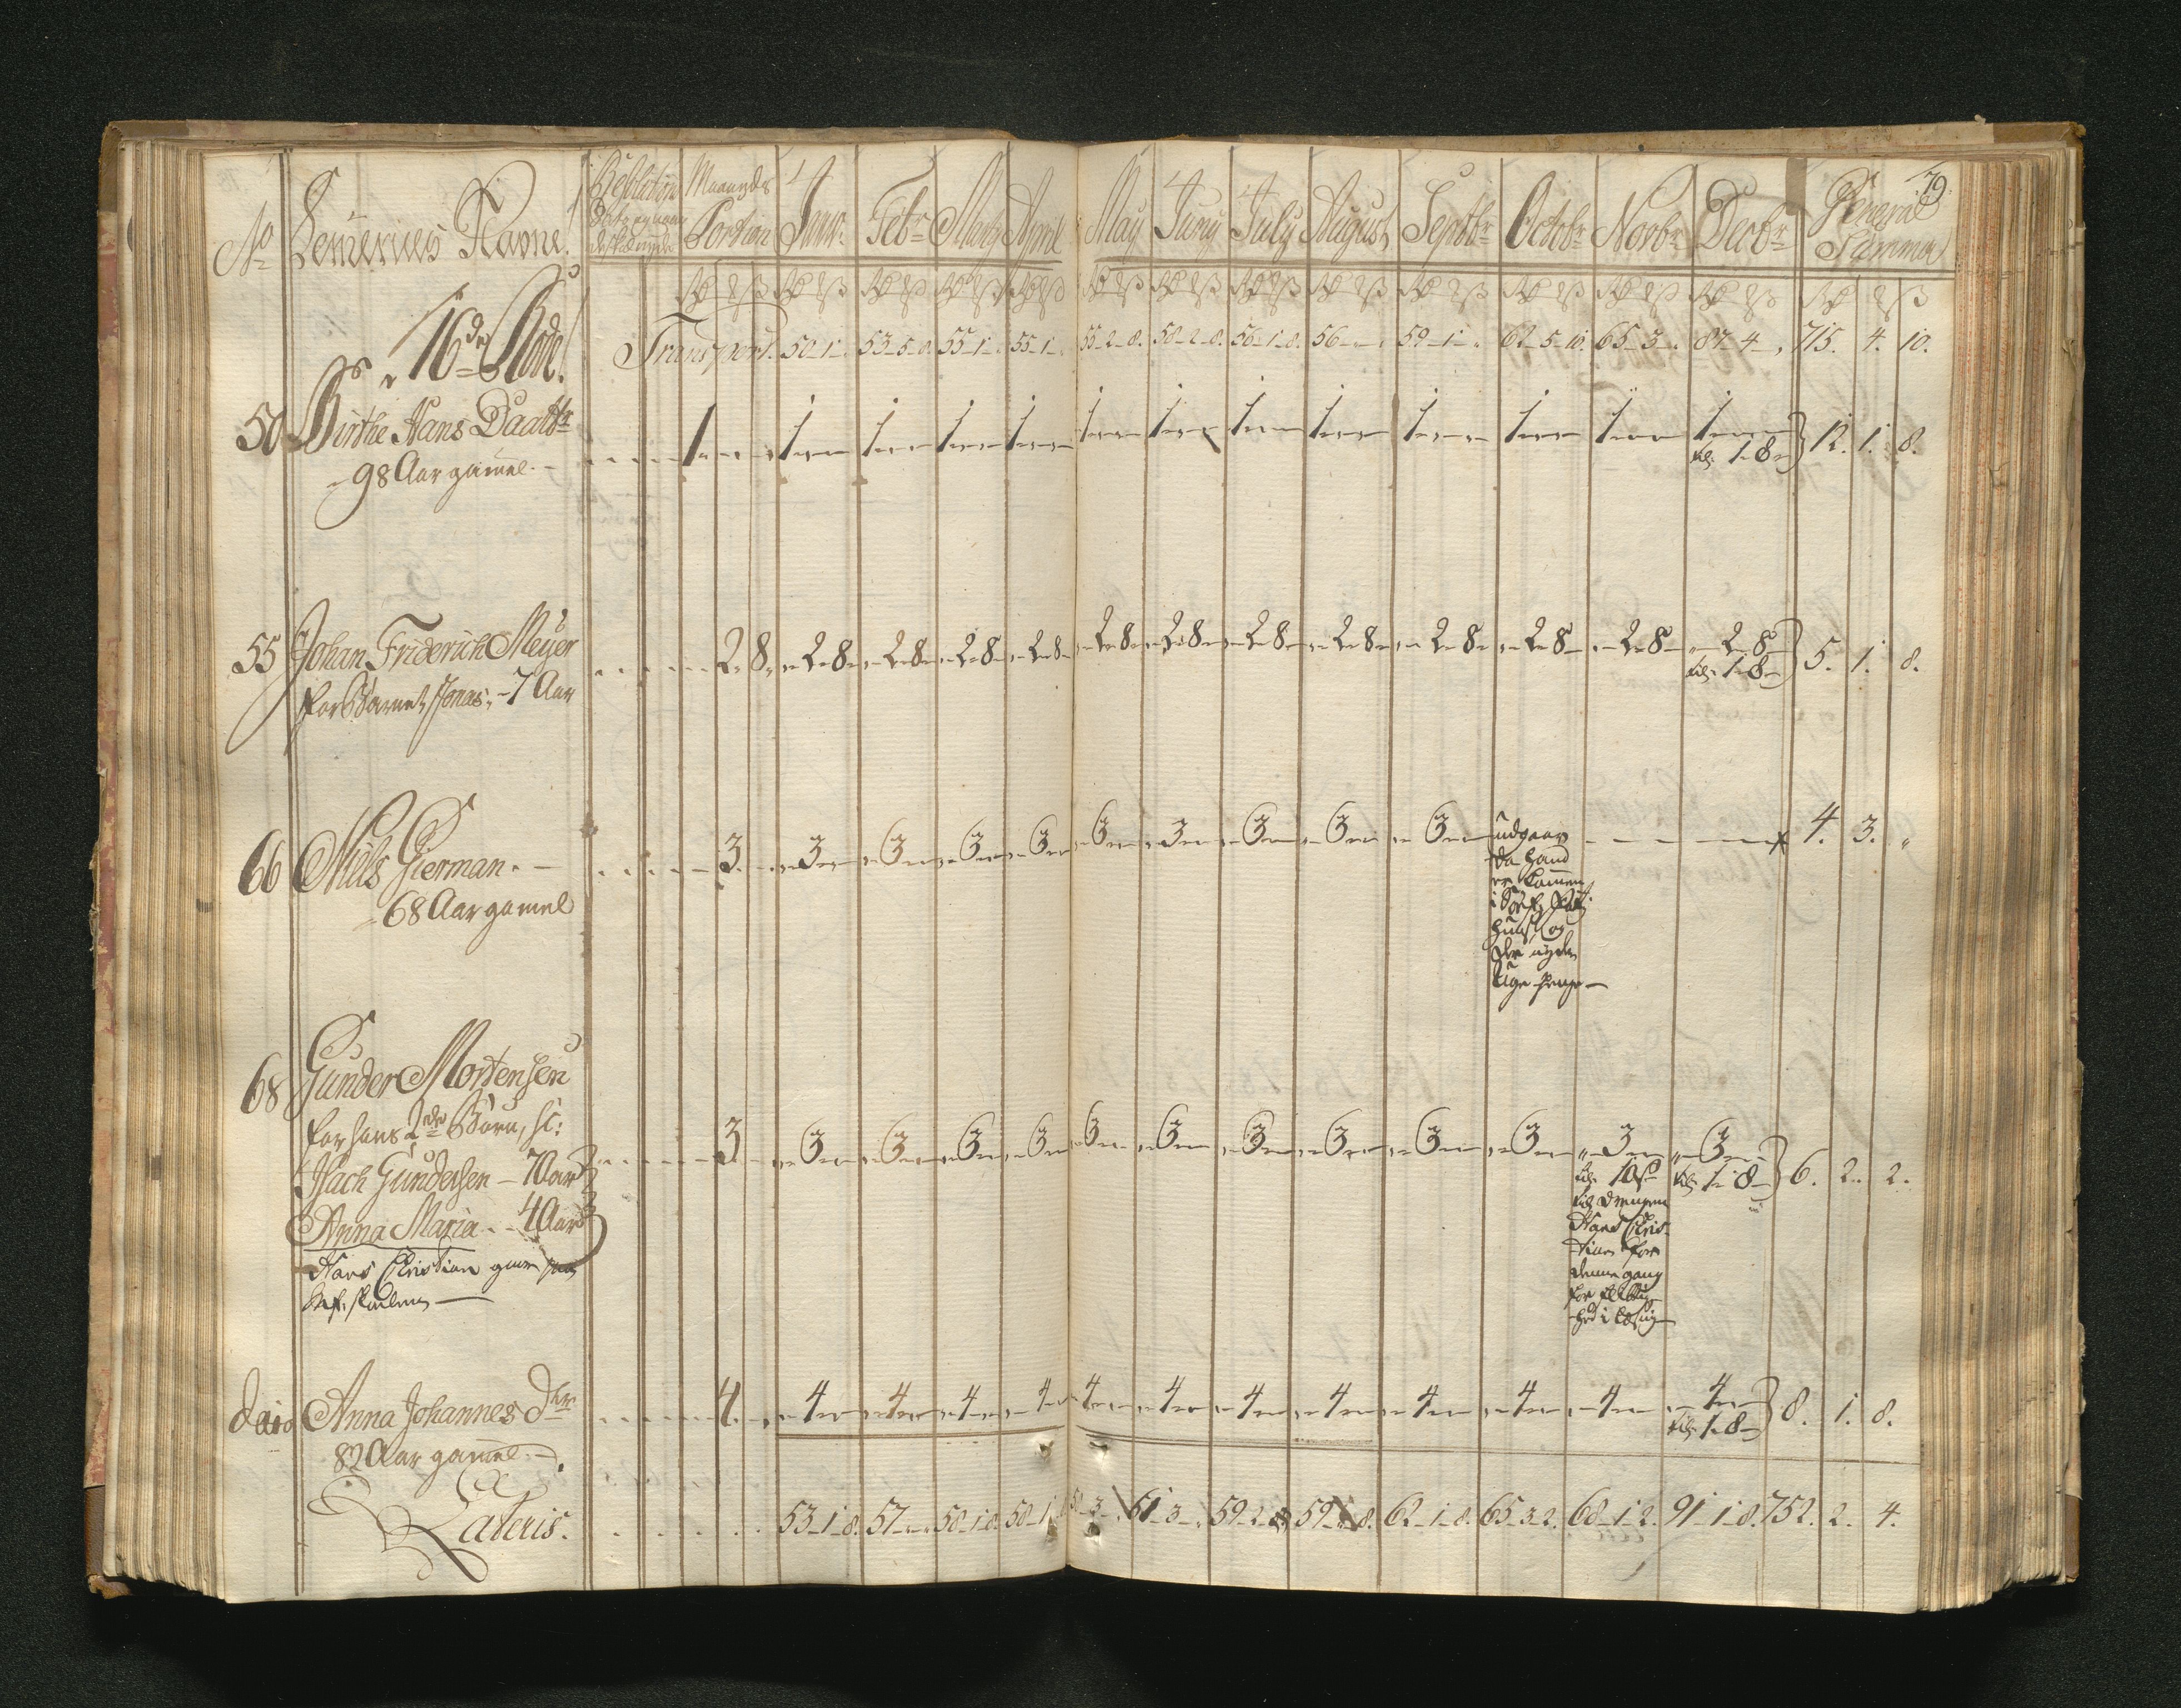 79.
No Lemernes Navne. Resolution Maaneds Portion Janr: Febr Marty April May Juny July August Septbr Octobr Novbr Decbr General Summa
16de Rode.
Transport. 50-1-„ 53-5-8. 55-1-„ 55-1-„ 55-2-8. 58-2-8. 56-1-8. 56-„-„ 59-1-„ 62-5-10. 65-3-„ 87-4-„ 715. 4. 10.
50 Birthe Hans Daattr 1 1 1 1 1 1 1 1 1 1 1 1 1
98 Aar gamel. til 1-8 12. 1. 8.
55 Johan Friderich Meyer 2. 8. 2-8 2-8 2-8 2-8 2-8 2-8 2-8 2-8 2-8 2-8 2-8 2-8
for Barnet Jonas: 7 Aar til 1-8 5. 1. 8.
66 Niels Gierman. 3 3 3 3 3 3 3 3 3 3 udgaar 4. 3. „
68 Aar gamel
da hand
er kommen
i
huus, og
der nyder
Uge penge
68 Gunder Mortensen
for hans 2de Børn, sc: 3 3 3 3 3 3 3 3 3 3 3 3 3
Isach Gundersen - 7 Aar til 10 ß til 1-8 6. 2. 2.
Anna Maria - 4 Aar
Hans Christian gaar paa
skolen
til drengen
Hans Chris-
tian for
denne gang
for flittig-
hed i læsning
daio Anna Johannes Dtr 4. 4 4 4 4 4 4 4 4 4 4 4 4
82 Aar gamel. til 1-8 8. 1. 8.
Lateris. 53-1-8. 57-„-„ 58-1-8. 58-1 3-„ 61-3-„ 59-2 59 8. 62-1-8. 65-3-2. 68-1-2. 91-1-8. 752. 2. 4.